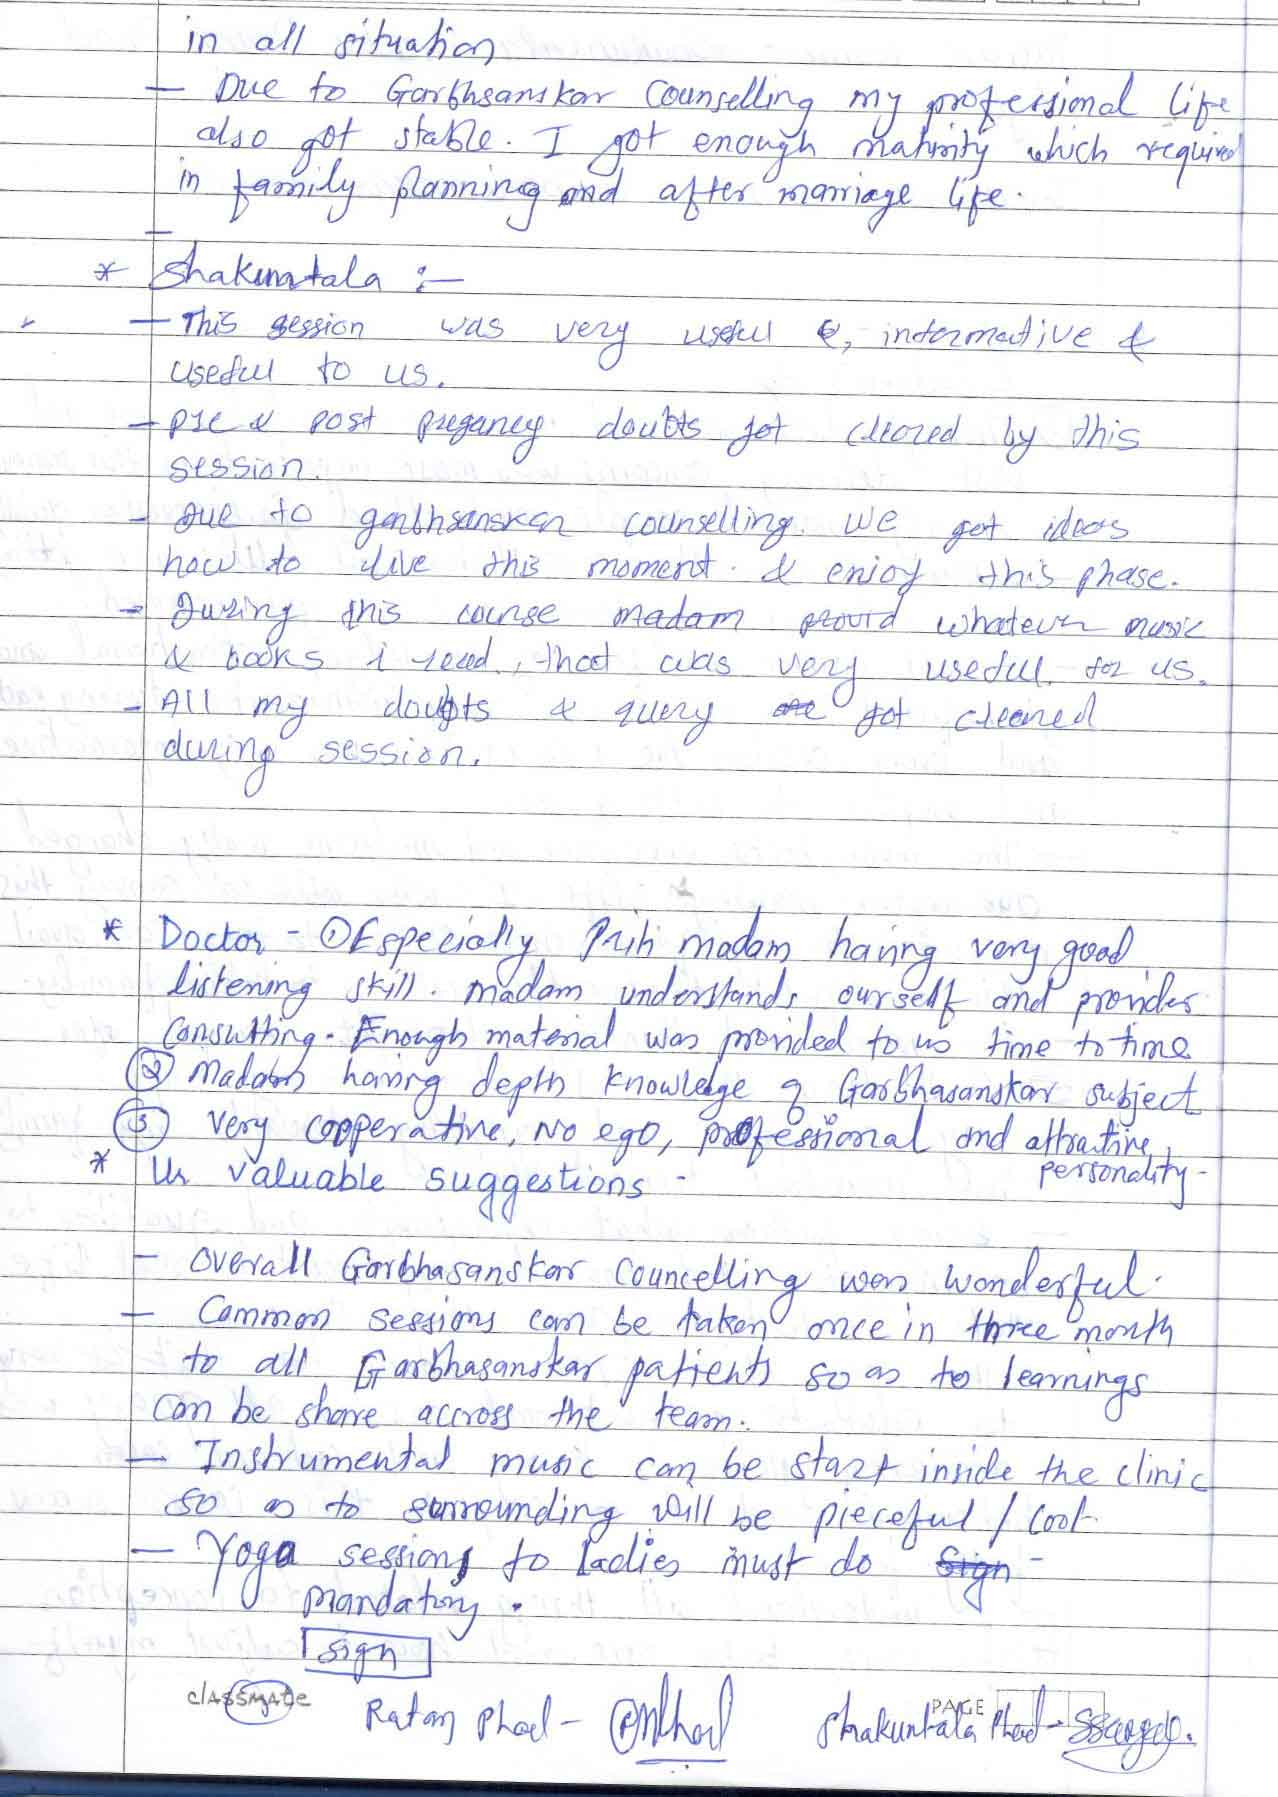 in all situation
- Due to Garbhsanskar Counselling my professional life
also got stable. I got enough maturity which required
in family planning and after marriage life.
-
* Shakuntala :-
- This session was very useful &, informative &
useful to us.
- pre & post pregancy doubts got cleared by this
session.
- due to garbhsanskar counselling. we got ideas
how to live this moment. & enjoy this phase.
- during this course madam provid whatever music
& books i read, that was very useful. for us.
- All my doubts & query got cleared
during session.
* Doctor - ① Especially Priti madam having very good
listening skill. madam understands ourself and provides
consulting. Enough material was provided to us time to time
② Madam having depth knowledge of Garbhasanskar subject
③ very cooperative, No ego, professional and attractive
personality -
* Ur valuable suggestions -
- Overall Garbhasanskar Councelling was wonderful.
- Common sessions can be taken once in three month
to all Garbhasanskar patients so as to learnings
can be share accross the team.
- Instrumental music can be start inside the clinic
so as to surrounding will be pieceful / cool.
- Yoga sessions to ladies must do Sign -
mandatory.
Sign
classmate
PAGE
Ratan Phad - Shakuntala Phad -